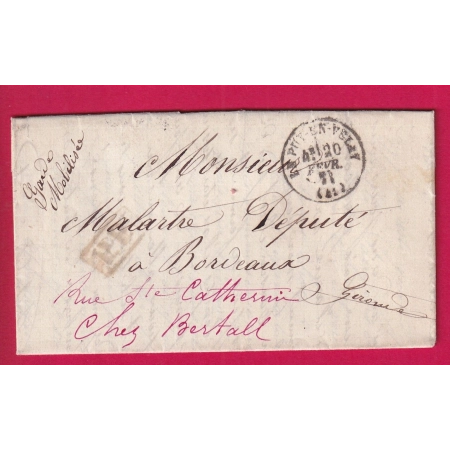 Garde
Mobilisée
LE PUY-EN-VELAY
20
FEVR.
71
(41)
Monsieur
Malartre Député
à Bordeaux
Gironde
Rue Ste Catherine
Chez Bertall
P.P.